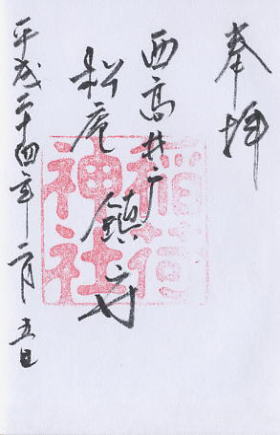 奉拝
西高井戸鎮守
松庵
稲荷神社
平成二十四年二月五日